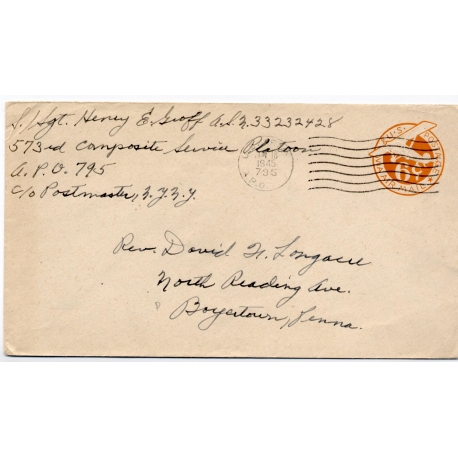 S/Sgt. Henry E. Groff A.S.N. 33232428
573rd Composite Service Platoon
A.P.O. 795
c/o Postmaster, N.Y. N.Y.
1945
7 30
A.P.O.
U.S. POSTAGE
6¢
VIA AIR MAIL
Rev. David F. Longacre
North Reading Ave.
Boyertown, Penna.